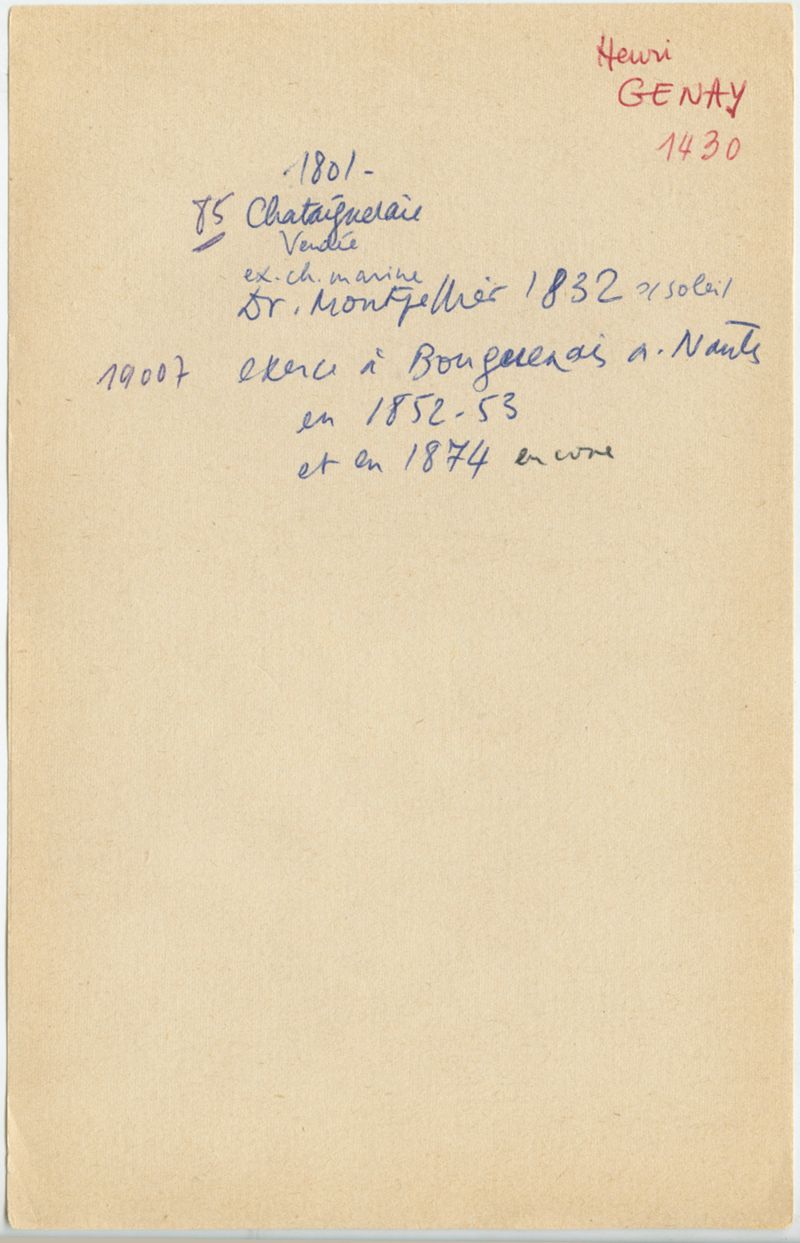 Henri
GENAY
1430
1801-
85 Chataigneraie
Vendée
ex. ch. marine
Dr. Montpellier 1832 soleil
19007 exerce à Bouguenais a. Nantes
en 1852-53
et en 1874 encore